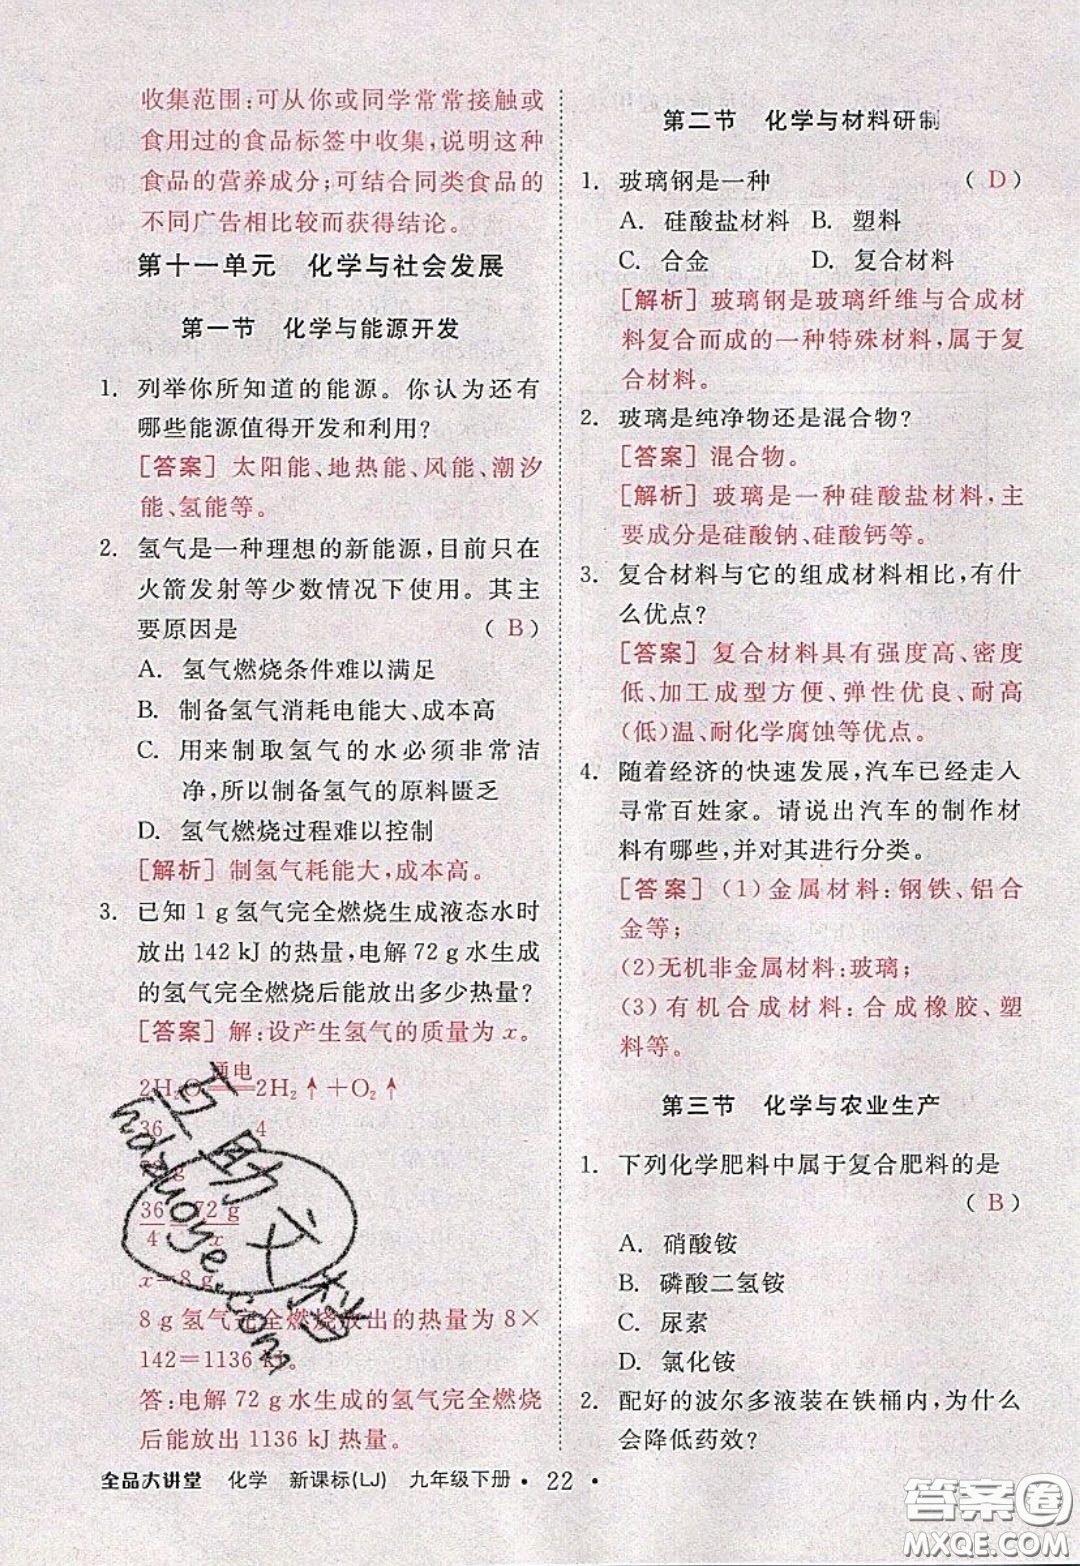 收集范围:可从你或同学常常接触或
食用过的食品标签中收集，说明这种
食品的营养成分;可结合同类食品的
不同广告相比较而获得结论。
第十一单元 化学与社会发展
第一节 化学与能源开发
1. 列举你所知道的能源。你认为还有
哪些能源值得开发和利用?
[答案] 太阳能、地热能、风能、潮汐
能、氢能等。
2. 氢气是一种理想的新能源,目前只在
火箭发射等少数情况下使用。其主
要原因是 ( B )
A. 氢气燃烧条件难以满足
B. 制备氢气消耗电能大、成本高
C. 用来制取氢气的水必须非常洁
净,所以制备氢气的原料匮乏
D. 氢气燃烧过程难以控制
[解析] 制氢气耗能大,成本高。
3. 已知 1 g 氢气完全燃烧生成液态水时
放出 142 kJ 的热量,电解 72 g 水生成
的氢气完全燃烧后能放出多少热量?
[答案] 解:设产生氢气的质量为 x。
通电
2H₂O══2H₂↑+O₂↑
36 4
72 g x
36/4=72 g/x
x=8 g
8 g 氢气完全燃烧放出的热量为 8×
142=1136 kJ。
答:电解 72 g 水生成的氢气完全燃烧
后能放出 1136 kJ 热量。
第二节 化学与材料研制
1. 玻璃钢是一种 ( D )
A. 硅酸盐材料 B. 塑料
C. 合金 D. 复合材料
[解析] 玻璃钢是玻璃纤维与合成材
料复合而成的一种特殊材料,属于复
合材料。
2. 玻璃是纯净物还是混合物?
[答案] 混合物。
[解析] 玻璃是一种硅酸盐材料,主
要成分是硅酸钠、硅酸钙等。
3. 复合材料与它的组成材料相比,有什
么优点?
[答案] 复合材料具有强度高、密度
低、加工成型方便、弹性优良、耐高
(低)温、耐化学腐蚀等优点。
4. 随着经济的快速发展,汽车已经走入
寻常百姓家。请说出汽车的制作材
料有哪些,并对其进行分类。
[答案] (1)金属材料:钢铁、铝合
金等;
(2)无机非金属材料:玻璃;
(3)有机合成材料:合成橡胶、塑
料等。
第三节 化学与农业生产
1. 下列化学肥料中属于复合肥料的是
( B )
A. 硝酸铵
B. 磷酸二氢铵
C. 尿素
D. 氯化铵
2. 配好的波尔多液装在铁桶内,为什么
会降低药效?
全品大讲堂 化学 新课标(LJ) 九年级下册 • 22 •
互助文档
hdzuoye.com
答案圈
MXQE.COM